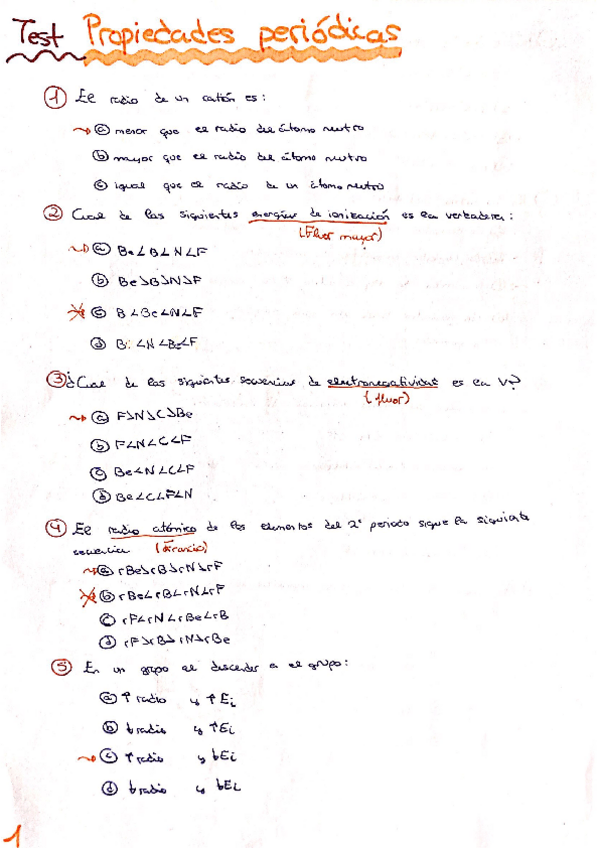 Test Propiedades periódicas
① El radio de un catión es:
→ ⓐ menor que el radio del átomo neutro
ⓑ mayor que el radio del átomo neutro
ⓒ igual que el radio de un átomo neutro
② Cual de las siguientes energías de ionización es la verdadera:
(Flúor mayor)
→ ⓐ Be<B<N<F
ⓑ Be>B>N>F
ⓒ B<Be<N<F
ⓓ B<N<Be<F
③ ¿Cual de las siguientes secuencias de electronegatividad es la V?
(fluor)
→ ⓐ F>N>C>Be
ⓑ F<N<C<F
ⓒ Be<N<C<F
ⓓ Be<C<F<N
④ El radio atómico de los elementos del 2º periodo sigue la siguiente
secuencia (Francio)
→ ⓐ rBe>rB>rN>rF
ⓑ rBe<rB<rN<rF
ⓒ rF<rN<rBe<rB
ⓓ rF>rB>rN>rBe
⑤ En un grupo al descender en el grupo:
ⓐ ↑ radio y ↑Ei
ⓑ ↓ radio y ↑Ei
→ ⓒ ↑ radio y ↓Ei
ⓓ ↓ radio y ↓Ei
1